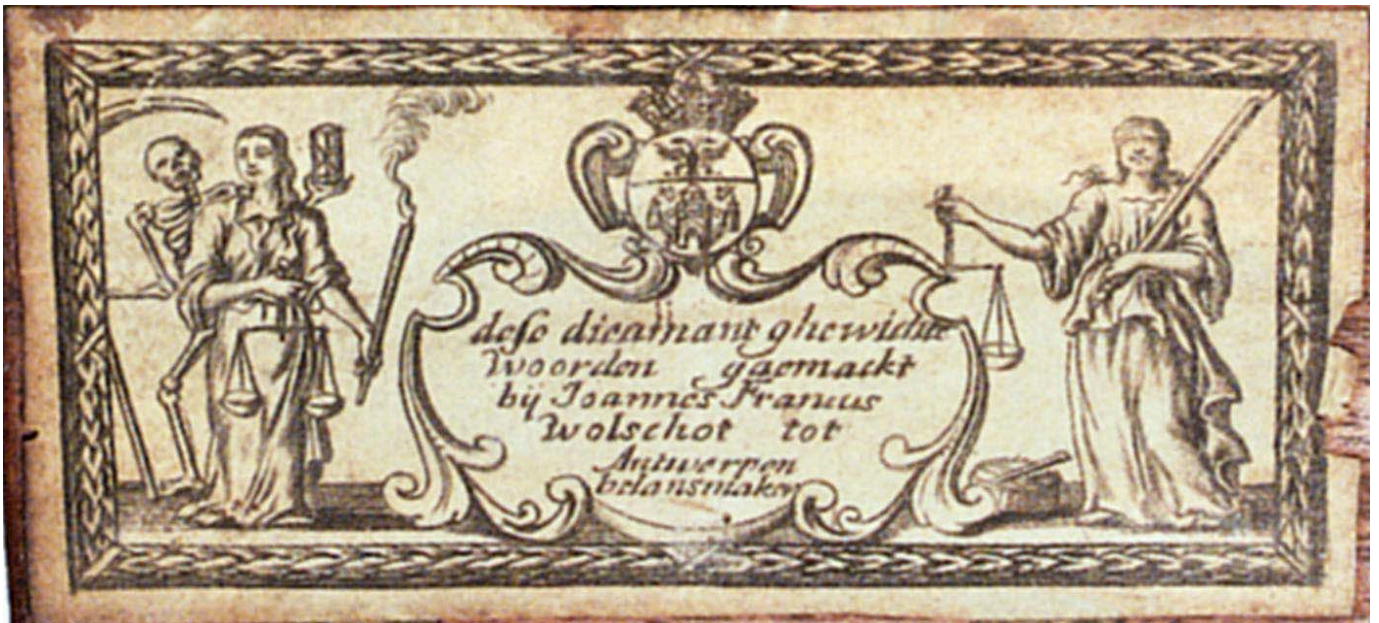 dese dieamant ghewichte
Woorden gaemackt
bij Joannes Francus
Wolschot tot
Antwerpen
belansmaker